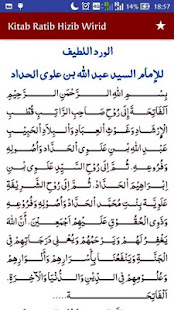 18:57
Kitab Ratib Hizib Wirid
الورد اللطيف
للإمام السيد عبد الله بن علوي الحداد
بِسْمِ اللهِ الرَّحْمٰنِ الرَّحِيْمِ
اَلْفَاتِحَةَ إِلَى رُوْحِ صَاحِبِ الرَّاتِبِ قُطْبِ
الْإِرْشَادِ وَغَوْثِ الْعِبَادِ وَالْبِلَادِ الْحَبِيْبِ عَبْدِ اللهِ بْنِ
عَلَوِيِّ الْحَدَّادِ وَأُصُوْلِهِ وَفُرُوْعِهِ. ثُمَّ إِلَى رُوْحِ السَّيِّدِ
إِبْرَاهِيْمَ الْحَدَّادِ. ثُمَّ إِلَى رُوْحِ
وَذَوِي الْحُقُوْقِ عَلَيْهِمْ أَجْمَعِيْنَ أَنَّ اللهَ
يَغْفِرُ لَهُمْ وَيَرْحَمُهُمْ وَيُعْلِي دَرَجَاتِهِمْ فِي
الْجَنَّةِ وَيَنْفَعُنَا بِأَسْرَارِهِمْ وَأَنْوَارِهِمْ
وَعُلُوْمِهِمْ فِي الدِّيْنِ وَالدُّنْيَا وَالْآخِرَةِ.
اَلْفَاتِحَةَ .....